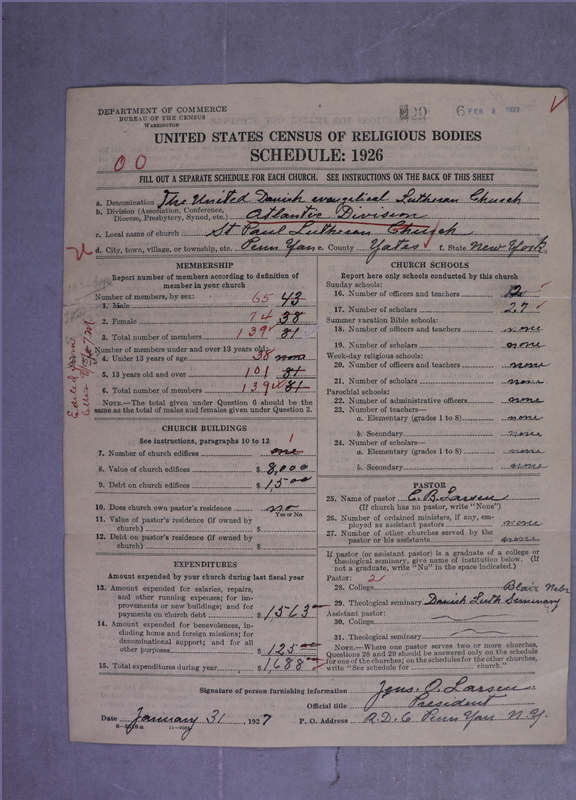 DEPARTMENT OF COMMERCE
BUREAU OF THE CENSUS
WASHINGTON
6 FEB 2 1927
UNITED STATES CENSUS OF RELIGIOUS BODIES
SCHEDULE: 1926
00
FILL OUT A SEPARATE SCHEDULE FOR EACH CHURCH. SEE INSTRUCTIONS ON THE BACK OF THIS SHEET
a. Denomination The United Danish evangelical Lutheran Church
b. Division (Association, Conference, Diocese, Presbytery, Synod, etc.) Atlantic Division
c. Local name of church St Paul Lutheran Church
d. City, town, village, or township, etc. Penn Yan e. County Yates f. State New York
MEMBERSHIP
Report number of members according to definition of member in your church
Number of members, by sex:
1. Male 65 43
2. Female 74 38
3. Total number of members 139 81
Number of members under and over 13 years old:
4. Under 13 years of age 38 none
5. 13 years old and over 101 81
6. Total number of members 139 81
NOTE.—The total given under Question 6 should be the same as the total of males and females given under Question 3.
CHURCH BUILDINGS
See instructions, paragraphs 10 to 12
7. Number of church edifices one 1
8. Value of church edifices $ 8,000
9. Debt on church edifices $ 1,500
10. Does church own pastor's residence no
Yes or No
11. Value of pastor's residence (if owned by church) $
12. Debt on pastor's residence (if owned by church) $
EXPENDITURES
Amount expended by your church during last fiscal year
13. Amount expended for salaries, repairs, and other running expenses; for improvements or new buildings; and for payments on church debt $ 1,563
14. Amount expended for benevolences, including home and foreign missions; for denominational support; and for all other purposes $ 125
15. Total expenditures during year $ 1,688
CHURCH SCHOOLS
Report here only schools conducted by this church
Sunday schools:
16. Number of officers and teachers
17. Number of scholars 27
Summer vacation Bible schools:
18. Number of officers and teachers none
19. Number of scholars none
Week-day religious schools:
20. Number of officers and teachers none
21. Number of scholars none
Parochial schools:
22. Number of administrative officers none
23. Number of teachers—
a. Elementary (grades 1 to 8) none
b. Secondary none
24. Number of scholars—
a. Elementary (grades 1 to 8) none
b. Secondary none
PASTOR
25. Name of pastor C. B. Larsen
(If church has no pastor, write "None")
26. Number of ordained ministers, if any, employed as assistant pastors none
27. Number of other churches served by the pastor or his assistants none
If pastor (or assistant pastor) is a graduate of a college or theological seminary, give name of institution below. (If not a graduate, write "No" in the space indicated.)
Pastor: 2
28. College Blair Nebr
29. Theological seminary Danish Luth Seminary
Assistant pastor:
30. College
31. Theological seminary
NOTE.—Where one pastor serves two or more churches, Questions 28 and 29 should be answered only on the schedule for one of the churches; on the schedules for the other churches, write "See schedule for church."
Signature of person furnishing information Jens. O. Larsen
Official title President
Date January 31, 1927 P. O. Address R. D. 6 Penn Yan N.Y.